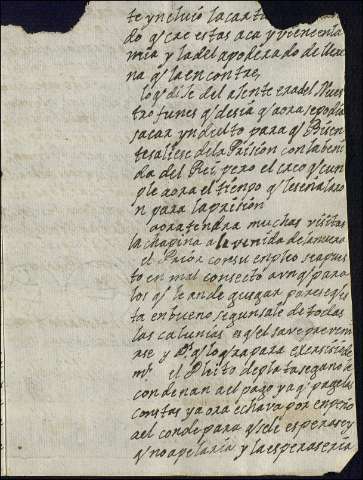 te yncluio la carta
do q̃ cre estas aca y viene en la
mia y la del apoderado de Ueu
na q̃ la encontre,
lo q̃ dise del asiente era del Nues
tro funes q̃ desia q̃ aora se podia
sacar yndulto para q̃ Bisen
te saliese de la Prision con la beni
da del Rei, pero el creo q̃ cun
ple aora el tienpo q̃ le señalaro
n para la prision
aora tendra muchas visitas
la chapina a la venida de
el Prior con su enpleo se a pues
to en mal consecto aunq̃ para
los q̃ le an de jusgar, parese q̃ es
ta en bueno, segun sale de todas
las calunias en q̃ el save preveni
rse y Ds. q̃ lo gra para exersisio de
ms. el Pleito de plata se gano le
condenan a el pago ya q̃ page las
costas ya ora echava por enpeño
a el conde para q̃ se le esperase y
q̃ no apelaria y la espera seria